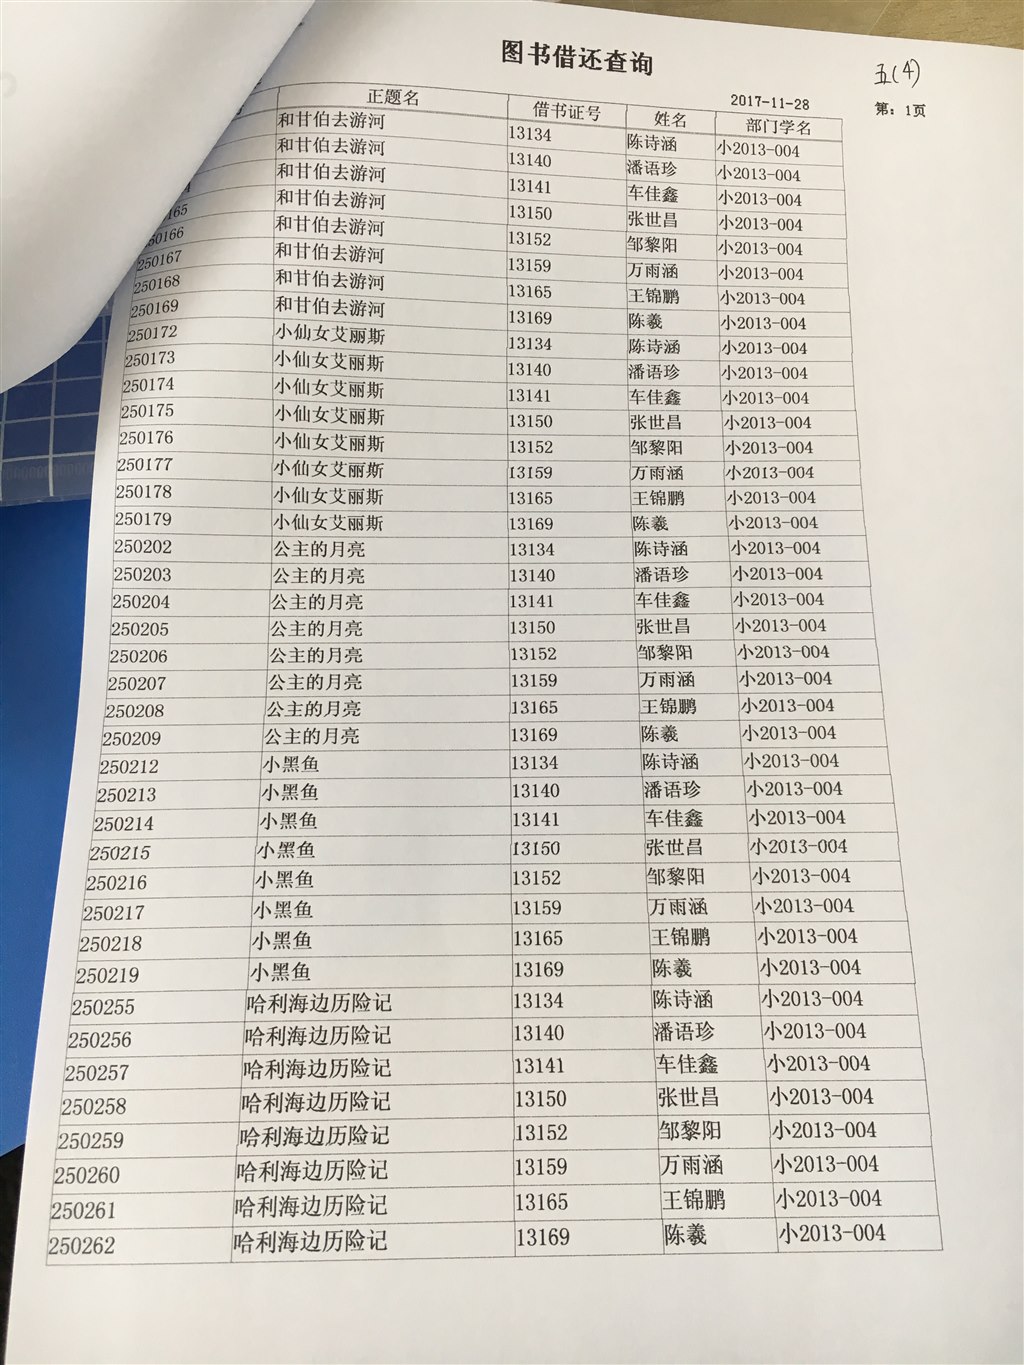 图书借还查询
五(4)
2017-11-28
第: 1页
正题名 借书证号 姓名 部门学名
和甘伯去游河 13134 陈诗涵 小2013-004
和甘伯去游河 13140 潘语珍 小2013-004
和甘伯去游河 13141 车佳鑫 小2013-004
165 和甘伯去游河 13150 张世昌 小2013-004
50166 和甘伯去游河 13152 邹黎阳 小2013-004
250167 和甘伯去游河 13159 万雨涵 小2013-004
250168 和甘伯去游河 13165 王锦鹏 小2013-004
250169 和甘伯去游河 13169 陈羲 小2013-004
250172 小仙女艾丽斯 13134 陈诗涵 小2013-004
250173 小仙女艾丽斯 13140 潘语珍 小2013-004
250174 小仙女艾丽斯 13141 车佳鑫 小2013-004
250175 小仙女艾丽斯 13150 张世昌 小2013-004
250176 小仙女艾丽斯 13152 邹黎阳 小2013-004
250177 小仙女艾丽斯 13159 万雨涵 小2013-004
250178 小仙女艾丽斯 13165 王锦鹏 小2013-004
250179 小仙女艾丽斯 13169 陈羲 小2013-004
250202 公主的月亮 13134 陈诗涵 小2013-004
250203 公主的月亮 13140 潘语珍 小2013-004
250204 公主的月亮 13141 车佳鑫 小2013-004
250205 公主的月亮 13150 张世昌 小2013-004
250206 公主的月亮 13152 邹黎阳 小2013-004
250207 公主的月亮 13159 万雨涵 小2013-004
250208 公主的月亮 13165 王锦鹏 小2013-004
250209 公主的月亮 13169 陈羲 小2013-004
250212 小黑鱼 13134 陈诗涵 小2013-004
250213 小黑鱼 13140 潘语珍 小2013-004
250214 小黑鱼 13141 车佳鑫 小2013-004
250215 小黑鱼 13150 张世昌 小2013-004
250216 小黑鱼 13152 邹黎阳 小2013-004
250217 小黑鱼 13159 万雨涵 小2013-004
250218 小黑鱼 13165 王锦鹏 小2013-004
250219 小黑鱼 13169 陈羲 小2013-004
250255 哈利海边历险记 13134 陈诗涵 小2013-004
250256 哈利海边历险记 13140 潘语珍 小2013-004
250257 哈利海边历险记 13141 车佳鑫 小2013-004
250258 哈利海边历险记 13150 张世昌 小2013-004
250259 哈利海边历险记 13152 邹黎阳 小2013-004
250260 哈利海边历险记 13159 万雨涵 小2013-004
250261 哈利海边历险记 13165 王锦鹏 小2013-004
250262 哈利海边历险记 13169 陈羲 小2013-004